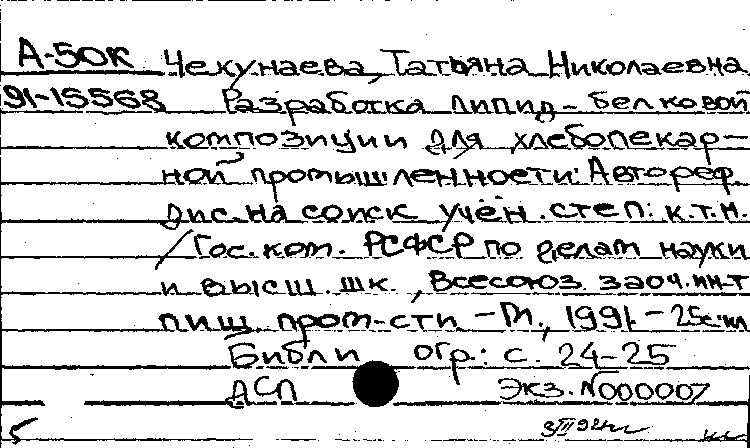 А-50к Чекунаева, Татьяна Николаевна
91-15568 Разработка липид-белковой
композиции для хлебопекар-
ной промышленности: Автореф.
дис. на соиск учён. степ: к.т.н.
/Гос. ком. РСФСР по делам науки
и высш. шк., Всесоюз. заоч. ин-т
пищ. пром-сти. - М., 1991. - 25с.
Библи огр.: с. 24-25
ДСП Экз. N000007
5